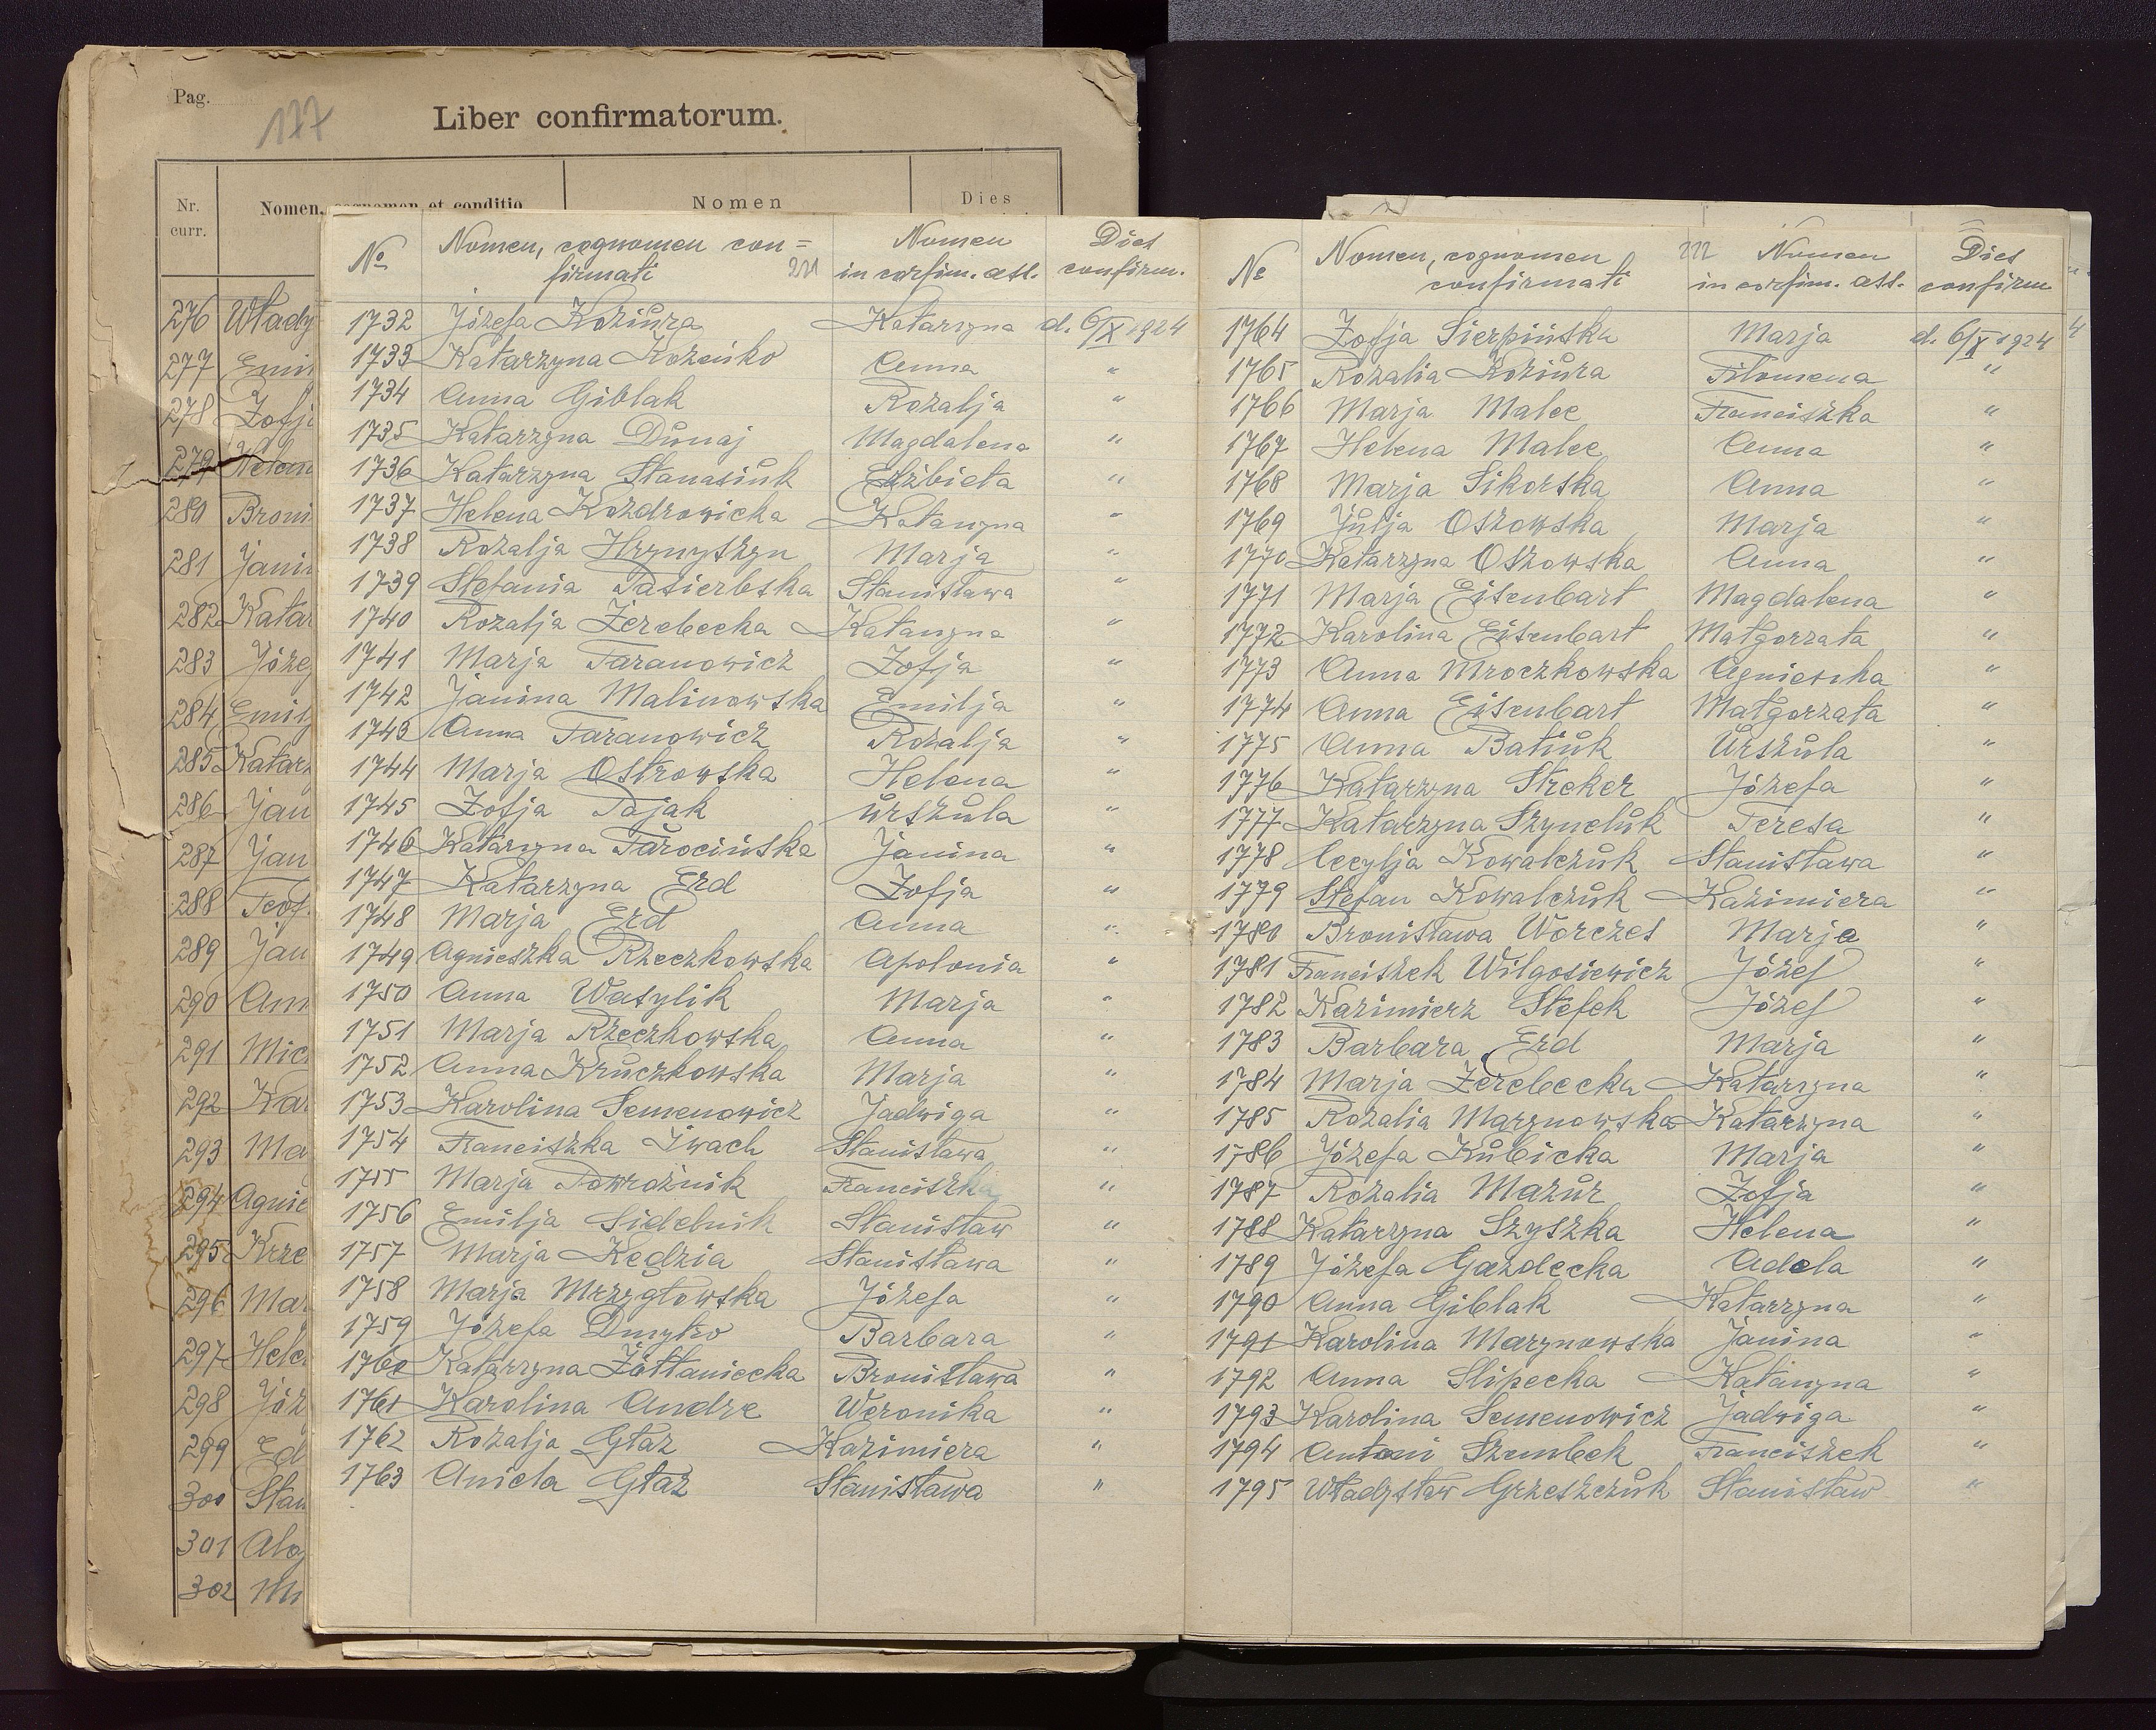 Pag.
177
Liber confirmatorum.
Nr. curr.
Nomen, cognomen et conditio
Nomen
Dies
276 Włady
277 Emil
278 Zofj
279 Helen
280 Broni
281 Janin
282 Katar
283 Józef
284 Emil
285 Katar
286 Jan
287 Jan
288 Teof
289 Jan
290 Ann
291 Mic
292 Kar
293 Ma
294 Agnie
295 Krze
296 Mar
297 Hele
298 Józ
299 Ed
300 Stan
301 Alo
302 Mi
№ Nomen, cognomen con= Nomen Dies
firmati 221 in confirm. ass. confirm.
1732 Józefa Koziura Katarzyna d. 6/X 1924
1733 Katarzyna Kozeńko Anna "
1734 Anna Giblak Rozalja "
1735 Katarzyna Dunaj Magdalena "
1736 Katarzyna Stanasiuk Elżbieta "
1737 Helena Kozdrowicka Katarzyna "
1738 Rozalja Hrynyszyn Marja "
1739 Stefania Pasierbska Stanisława "
1740 Rozalja Żerebecka Katarzyna "
1741 Marja Taranowicz Zofja "
1742 Janina Malinowska Emilja "
1743 Anna Taranowicz Rozalja "
1744 Marja Ostrowska Helena "
1745 Zofja Pająk Urszula "
1746 Katarzyna Tarocińska Janina "
1747 Katarzyna Erd Zofja "
1748 Marja Erd Anna "
1749 Agnieszka Rzeczkowska Apolonia "
1750 Anna Wasylik Marja "
1751 Marja Rzeczkowska Anna "
1752 Anna Kruczkowska Marja "
1753 Karolina Semenowicz Jadwiga "
1754 Franciszka Iwach Stanisława "
1755 Marja Powroźnik Franciszka "
1756 Emilja Sidelnik Stanisław "
1757 Marja Kędzia Stanisława "
1758 Marja Mrzygłowska Józefa "
1759 Józefa Dmytro Barbara "
1760 Katarzyna Żółtaniecka Bronisława "
1761 Karolina Andre Weronika "
1762 Rozalja Głaz Kazimiera "
1763 Aniela Głaz Stanisława "
№ Nomen, cognomen 222 Nomen Dies
confirmati in confirm. ass. confirm
1764 Zofja Sierpińska Marja d. 6/X 1924
1765 Rozalia Koziura Filomena "
1766 Marja Malec Franciszka "
1767 Helena Malec Anna "
1768 Marja Sikorska Anna "
1769 Julja Oszowska Marja "
1770 Katarzyna Oszowska Anna "
1771 Marja Eisenbart Magdalena "
1772 Karolina Eisenbart Małgorzata "
1773 Anna Mroczkowska Agnieszka "
1774 Anna Eisenbart Małgorzata "
1775 Anna Batiuk Urszula "
1776 Katarzyna Streker Józefa "
1777 Katarzyna Szyneluk Teresa "
1778 Cecylja Kowalczuk Stanisława "
1779 Stefan Kowalczuk Kazimiera "
1780 Bronisława Worczes Marja "
1781 Franciszek Wilgosiewicz Józef "
1782 Kazimierz Stefek Józef "
1783 Barbara Erd Marja "
1784 Marja Żerebecka Katarzyna "
1785 Rozalia Marynowska Katarzyna "
1786 Józefa Kubicka Marja "
1787 Rozalia Mazur Zofja "
1788 Katarzyna Szyszka Helena "
1789 Józefa Gazdecka Adela "
1790 Anna Giblak Katarzyna "
1791 Karolina Marynowska Janina "
1792 Anna Slipecka Katarzyna "
1793 Karolina Semenowicz Jadwiga "
1794 Antoni Szembek Franciszek "
1795 Władysław Grzeszczuk Stanisław "